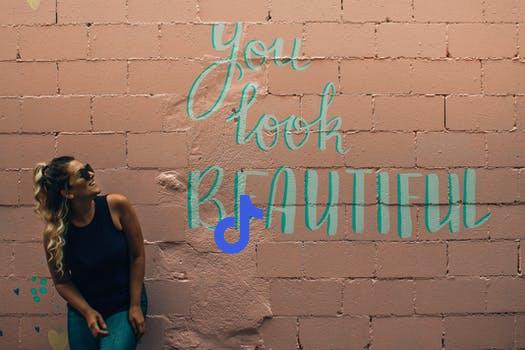 You
look
BEAUTIFUL